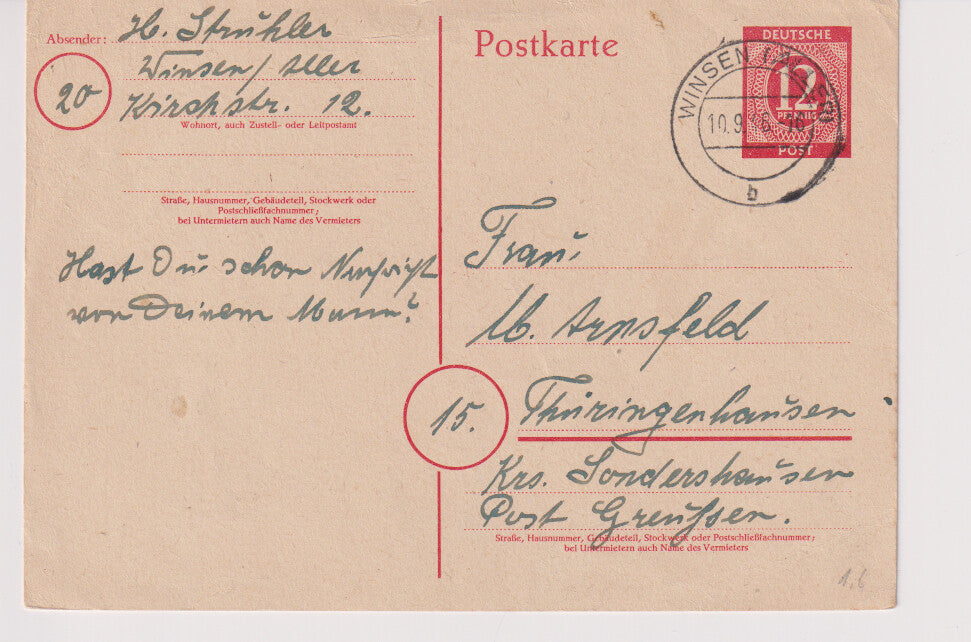 Absender: H. Strühler
Winsen / Aller
20
Kirchstr. 12.
Wohnort, auch Zustell- oder Leitpostamt
Straße, Hausnummer, Gebäudeteil, Stockwerk oder
Postschließfachnummer;
bei Untermietern auch Name des Vermieters
Hast Du schon Nachricht
von Deinem Mann?
Postkarte
DEUTSCHE
12
PFENNIG
POST
WINSEN (ALLER)
10.9.46.-16
b
Frau
M. Arnsfeld
15. Thüringenhausen
Krs. Sondershausen
Post Greußen.
Straße, Hausnummer, Gebäudeteil, Stockwerk oder Postschließfachnummer;
bei Untermietern auch Name des Vermieters
1,6